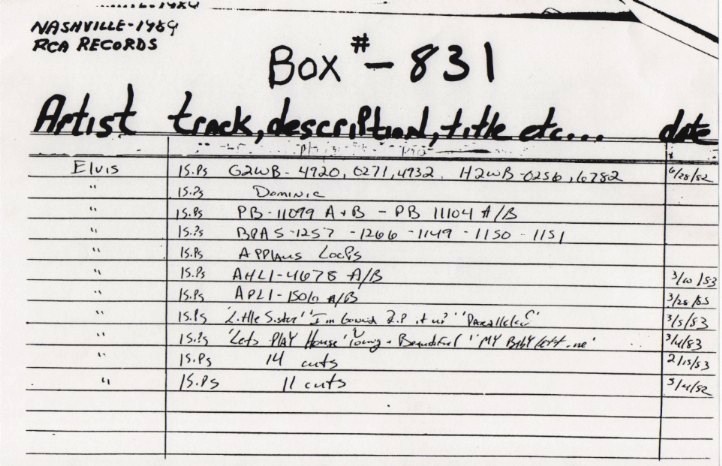 NASHVILLE-1989
RCA RECORDS
Box # - 831
Artist track, description, title etc... date
Elvis 15.Ps G2WB-4920, 0271, 4932 H2WB-0256, 6782 6/28/82
" 15.Ps Dominic
" 15.Ps PB-11099 A+B - PB 11104 A/B
" 15.Ps BPAS-1257 -1266 -1149 -1150 -1151
" 15.Ps APPlaus Loops
" 15.Ps AHL1-4678 A/B 3/10/83
" 15.Ps APL1- A/B
" 15.Ps 'Little Sister' 'I'm bound 2.P it up' 3/5/83
" 15.Ps 'Lets PLAY House' 'Young + Beautiful' 'MY BABY left me' 3/4/83
" 15.Ps 14 cuts 2/15/83
" 15.Ps 11 cuts 3/4/82